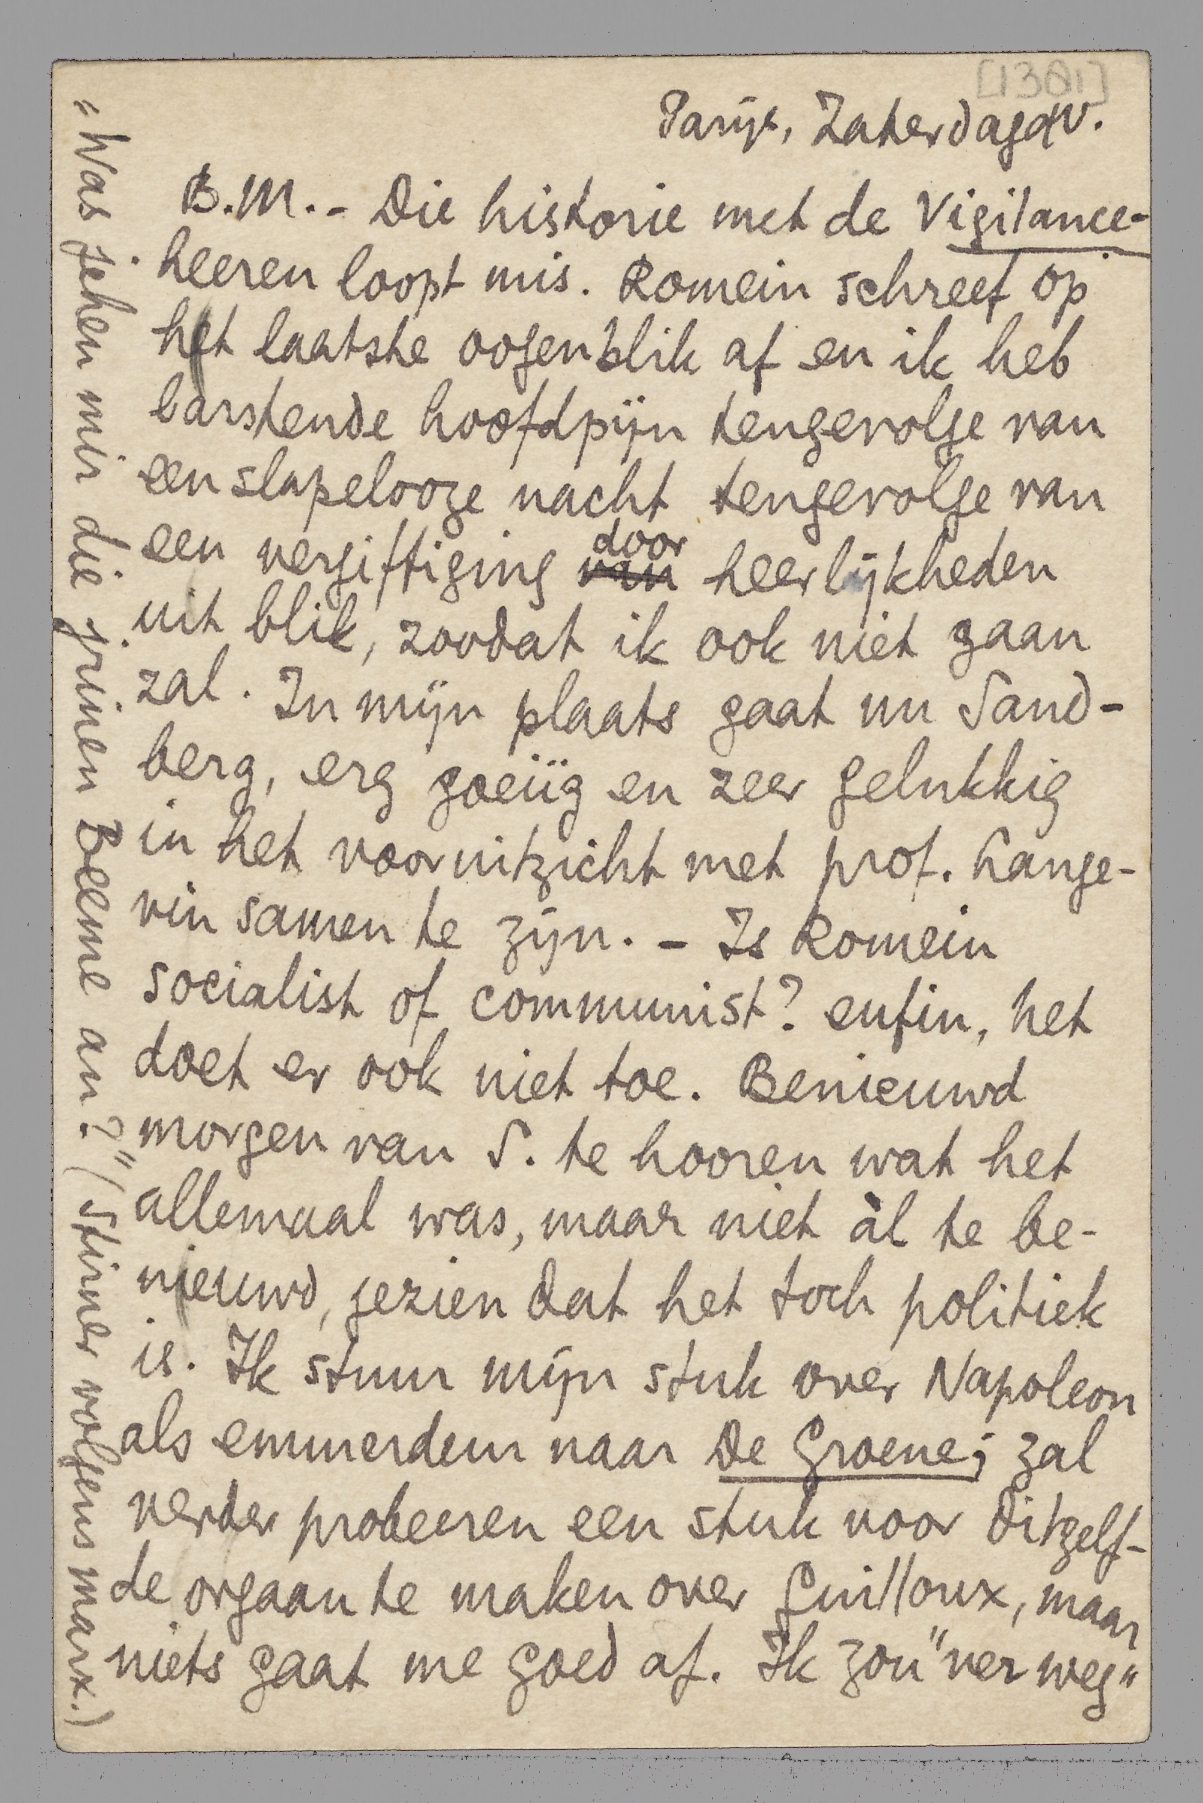 [1381]
Parijs, Zaterdagav.
B.M. - Die historie met de Vigilance-
heeren loopt mis. Romein schreef op
het laatste oogenblik af en ik heb
barstende hoofdpijn tengevolge van
een slapelooze nacht tengevolge van
een vergiftiging van door heerlijkheden
uit blik, zoodat ik ook niet gaan
zal. In mijn plaats gaat nu Sand-
berg, erg goeiïg en zeer gelukkig
in het vooruitzicht met prof. Lange-
vin samen te zijn. - Is Romein
socialist of communist? enfin, het
doet er ook niet toe. Benieuwd
morgen van S. te hooren wat het
allemaal was, maar niet àl te be-
nieuwd, gezien dat het toch politiek
is. Ik stuur mijn stuk over Napoleon
als emmerdeur naar De Groene; zal
verder probeeren een stuk voor ditzelf-
de orgaan te maken over Guilloux, maar
niets gaat me goed af. Ik zou "ver weg"
"Was jehen mir die jrinen Beeme an?" (Stirner volgens Marx.)